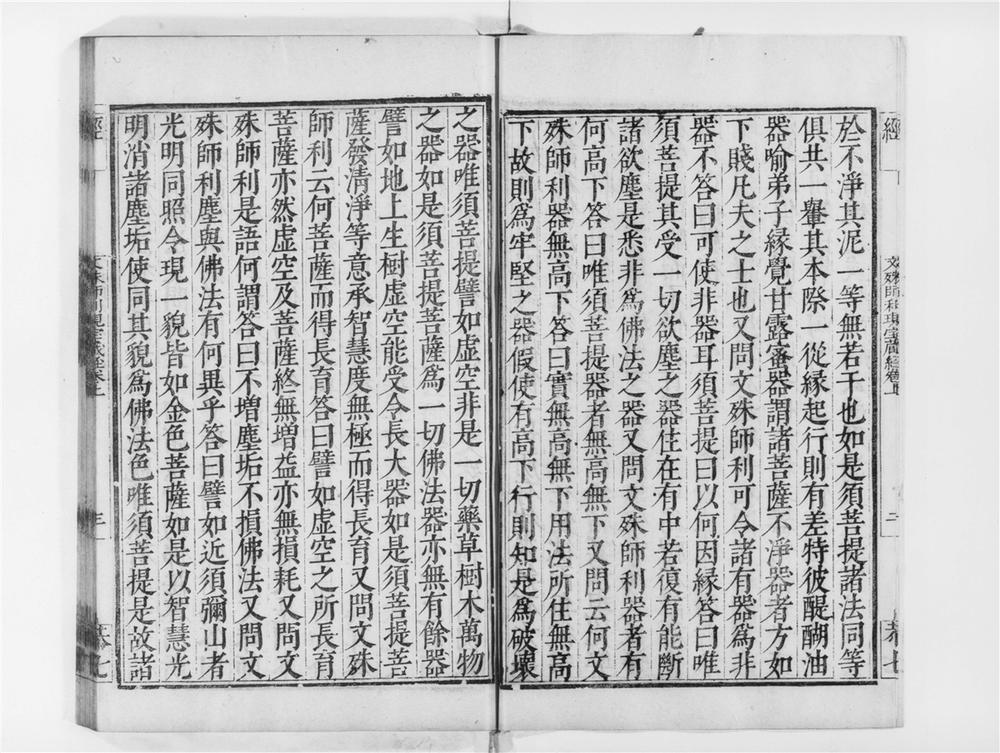 於不淨其泥一等無若干也如是須菩提諸法同等
俱共一轝其本際一從緣起行則有差特彼醍醐油
器喻弟子緣覺甘露蜜器謂諸菩薩不淨器者方如
下賤凡夫之士也又問文殊師利可令諸有器爲非
器不答曰可使非器耳須菩提曰以何因緣答曰唯
須菩提其受一切欲塵之器住在有中若復有能斷
諸欲塵是悉非爲佛法之器又問文殊師利器者有
何高下答曰唯須菩提器者無高無下又問云何文
殊師利器無高下答曰實無高無下用法所住無高
下故則爲牢堅之器假使有高下行則知是爲破壞
之器唯須菩提譬如虛空非是一切藥草樹木萬物
之器如是須菩提菩薩爲一切佛法器亦無有餘器
譬如地上生樹虛空能受令長大器如是須菩提菩
薩發清淨等意承智慧度無極而得長育又問文殊
師利云何菩薩而得長育答曰譬如虛空之所長育
菩薩亦然虛空及菩薩終無增益亦無損耗又問文
殊師利是語何謂答曰不增塵垢不損佛法又問文
殊師利塵與佛法有何異乎答曰譬如近須彌山者
光明同照令現一貌皆如金色菩薩如是以智慧光
明消諸塵垢使同其貌爲佛法色唯須菩提是故諸
經
文殊師利現寶藏經卷上
三
七
經
文殊師利現寶藏經卷上
三
七